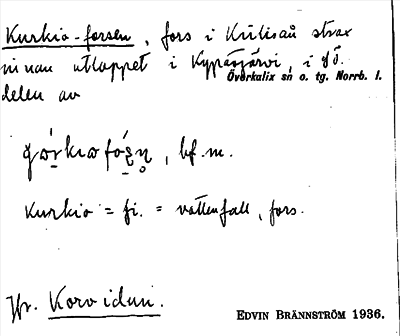 Kurkio-forsen, fors i Kölisån strax
innan utloppet i Kypäsjärvi, i sö.
Överkalix sn o. tg. Norrb. l.
delen av
bf. m.
Kurkio = fi. = vattenfall, fors.
Jfr. Korvidun.
EDVIN BRÄNNSTRÖM 1936.